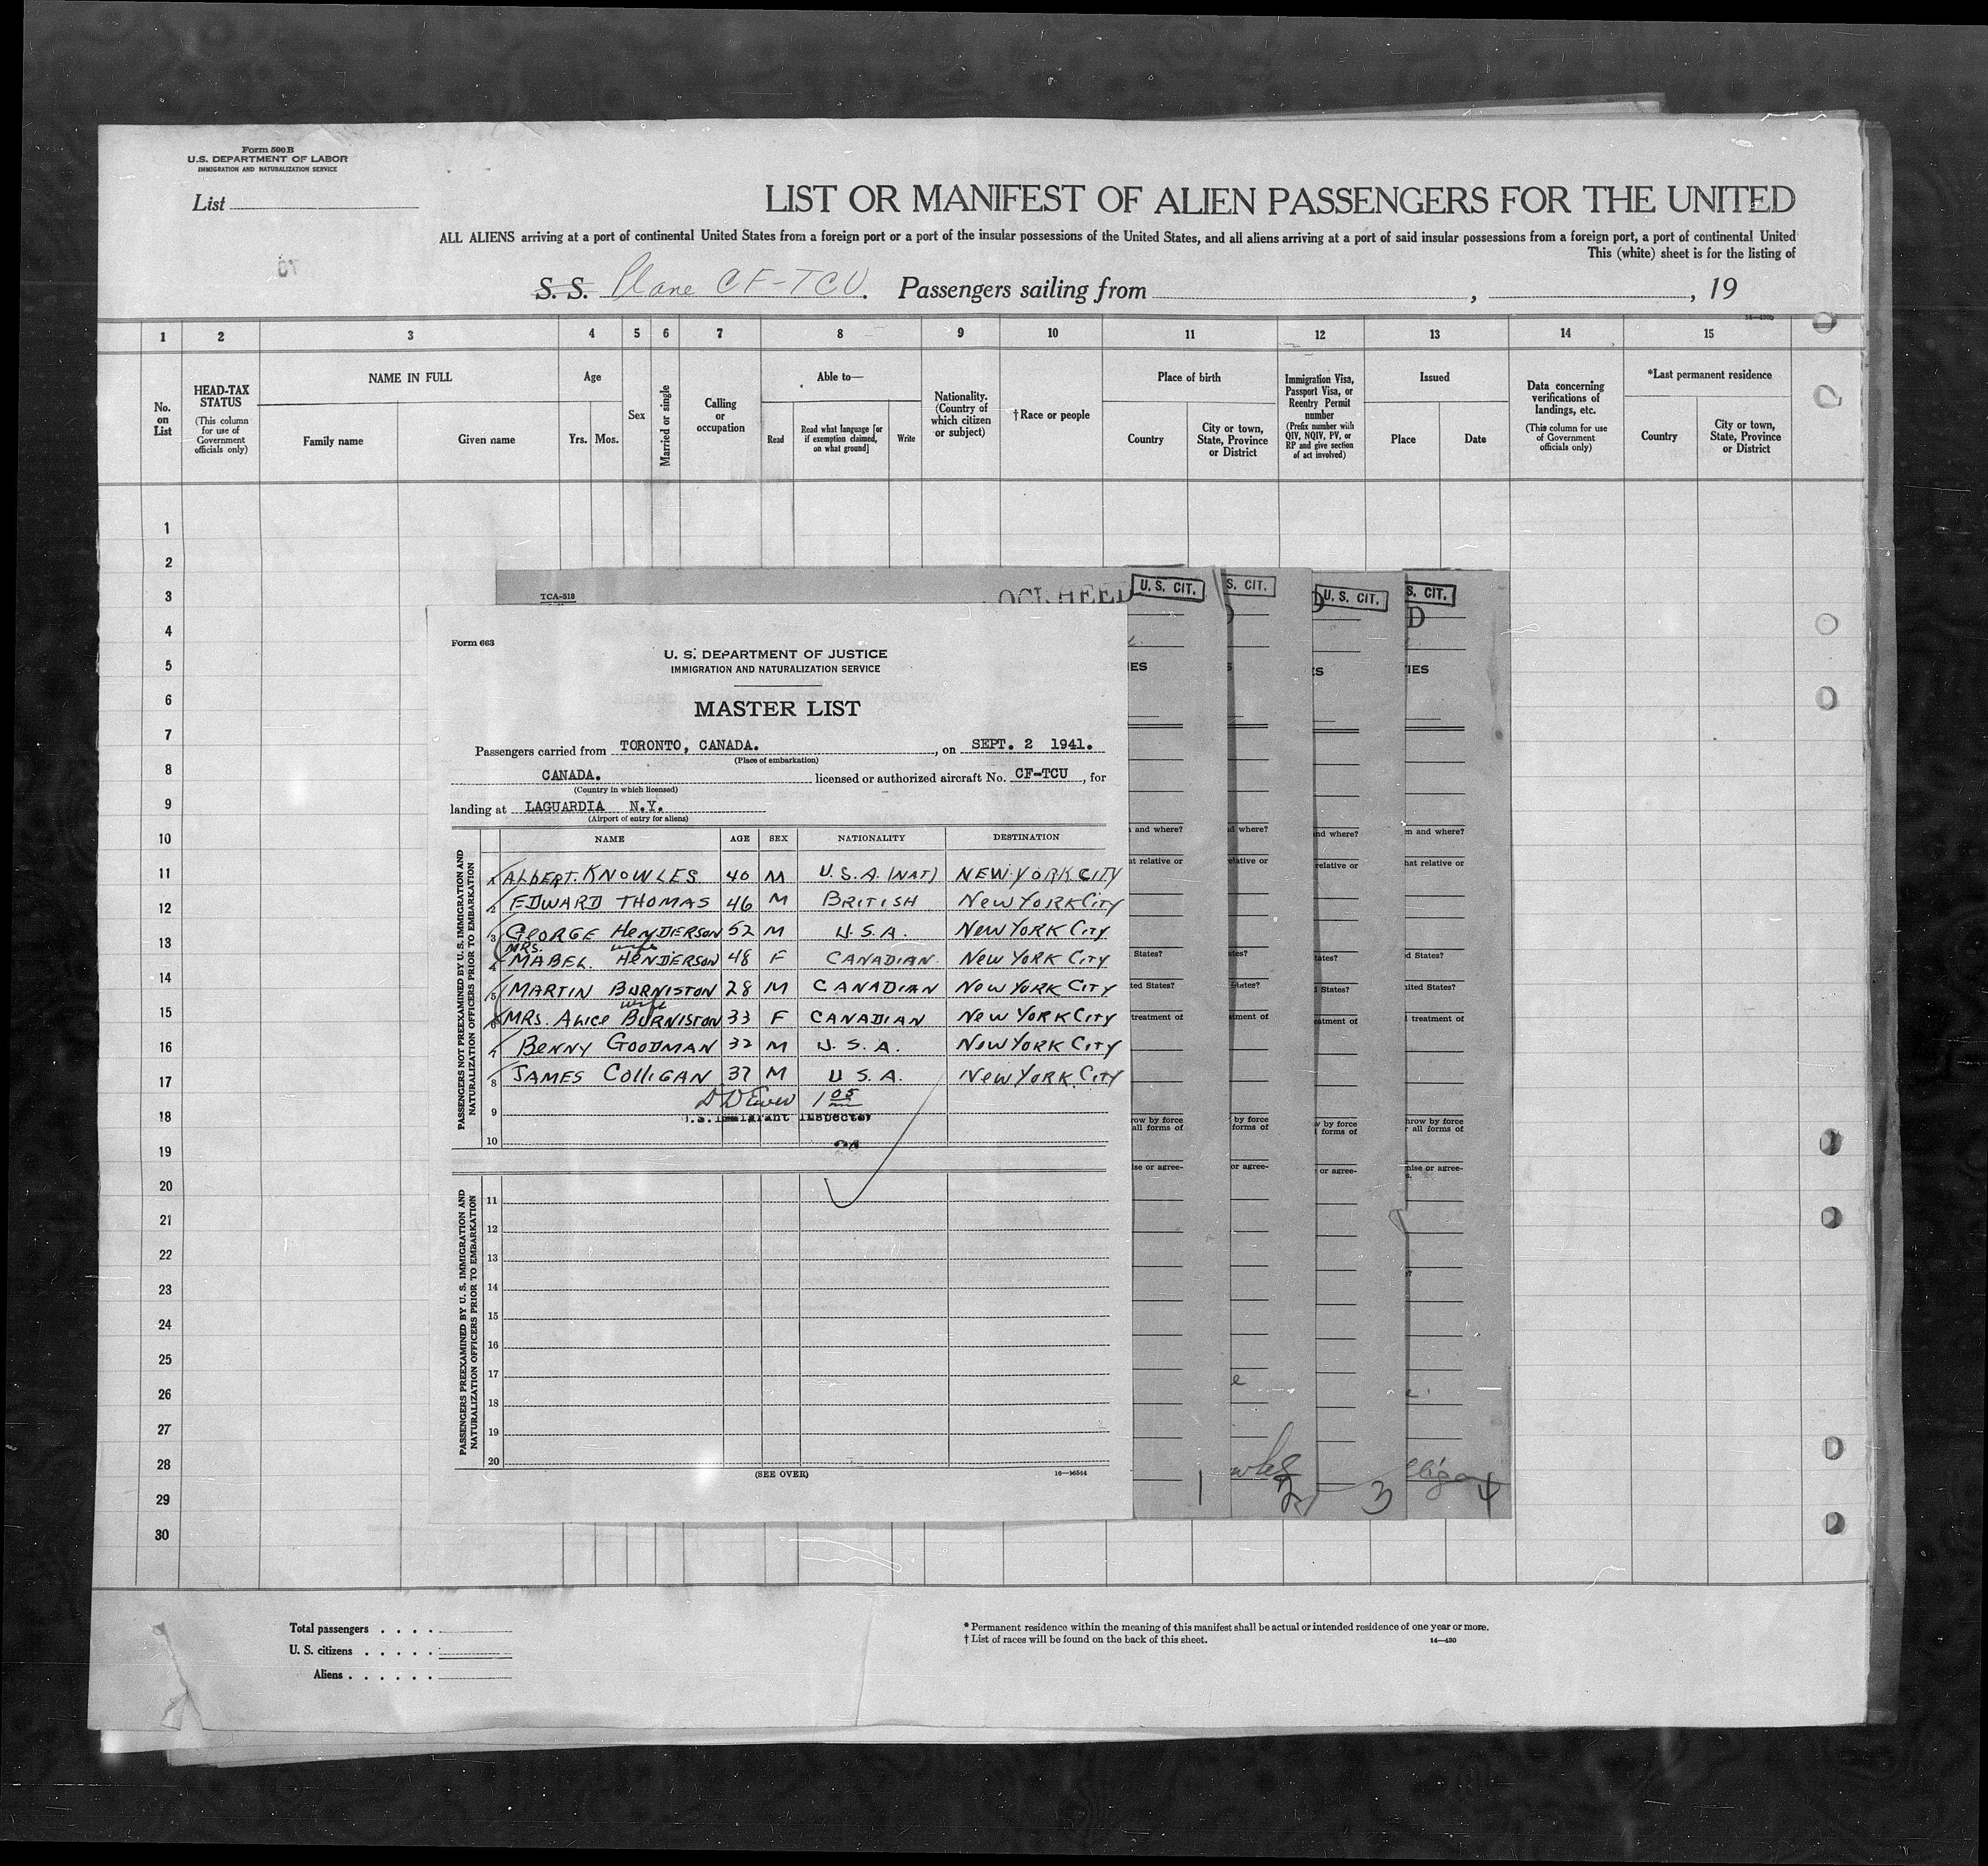 Form 500 B
U.S. DEPARTMENT OF LABOR
IMMIGRATION AND NATURALIZATION SERVICE
List
LIST OR MANIFEST OF ALIEN PASSENGERS FOR THE UNITED
ALL ALIENS arriving at a port of continental United States from a foreign port or a port of the insular possessions of the United States, and all aliens arriving at a port of said insular possessions from a foreign port, a port of continental United
This (white) sheet is for the listing of
S. S. Plane CF-TCU. Passengers sailing from , , 19
1 2 3 4 5 6 7 8 9 10 11 12 13 14 15
No. on List
HEAD-TAX STATUS (This column for use of Government officials only)
NAME IN FULL
Family name Given name
Age
Yrs. Mos.
Sex
Married or single
Calling or occupation
Able to—
Read
Read what language [or if exemption claimed, on what ground]
Write
Nationality. (Country of which citizen or subject)
†Race or people
Place of birth
Country
City or town, State, Province or District
Immigration Visa, Passport Visa, or Reentry Permit number (Prefix number with QIV, NQIV, PV, or RP and give section of act involved)
Issued
Place Date
Data concerning verifications of landings, etc. (This column for use of Government officials only)
*Last permanent residence
Country
City or town, State, Province or District
1
2
3
4
5
6
7
8
9
10
11
12
13
14
15
16
17
18
19
20
21
22
23
24
25
26
27
28
29
30
TCA-518
U. S. CIT.
S. CIT.
U. S. CIT.
S. CIT.
Form 663
U. S. DEPARTMENT OF JUSTICE
IMMIGRATION AND NATURALIZATION SERVICE
MASTER LIST
Passengers carried from TORONTO, CANADA. , on SEPT. 2 1941.
(Place of embarkation)
CANADA. licensed or authorized aircraft No. CF-TCU , for
(Country in which licensed)
landing at LAGUARDIA N.Y.
(Airport of entry for aliens)
NAME AGE SEX NATIONALITY DESTINATION
PASSENGERS NOT PREEXAMINED BY U. S. IMMIGRATION AND NATURALIZATION OFFICERS PRIOR TO EMBARKATION
1 ALBERT. KNOWLES 40 M U.S.A. (NAT) NEW YORK CITY
2 EDWARD THOMAS 46 M BRITISH NEW YORK CITY
3 GEORGE HENDERSON 52 M U.S.A. NEW YORK CITY
4 MRS. MABEL. wife HENDERSON 48 F CANADIAN. NEW YORK CITY
5 MARTIN BURNISTON 28 M CANADIAN NEW YORK CITY
6 MRS. ALICE wife BURNISTON 33 F CANADIAN NEW YORK CITY
7 BENNY GOODMAN 32 M U. S. A. NEW YORK CITY
8 JAMES COLLIGAN 37 M U S. A. NEW YORK CITY
9
U.S. Immigrant Inspector
10
PASSENGERS PREEXAMINED BY U. S. IMMIGRATION AND NATURALIZATION OFFICERS PRIOR TO EMBARKATION
11
12
13
14
15
16
17
18
19
20
(SEE OVER) 16—16544
1 2 3 4
Total passengers . . . .
U. S. citizens . . . . .
Aliens . . . . . .
* Permanent residence within the meaning of this manifest shall be actual or intended residence of one year or more.
† List of races will be found on the back of this sheet. 14—430